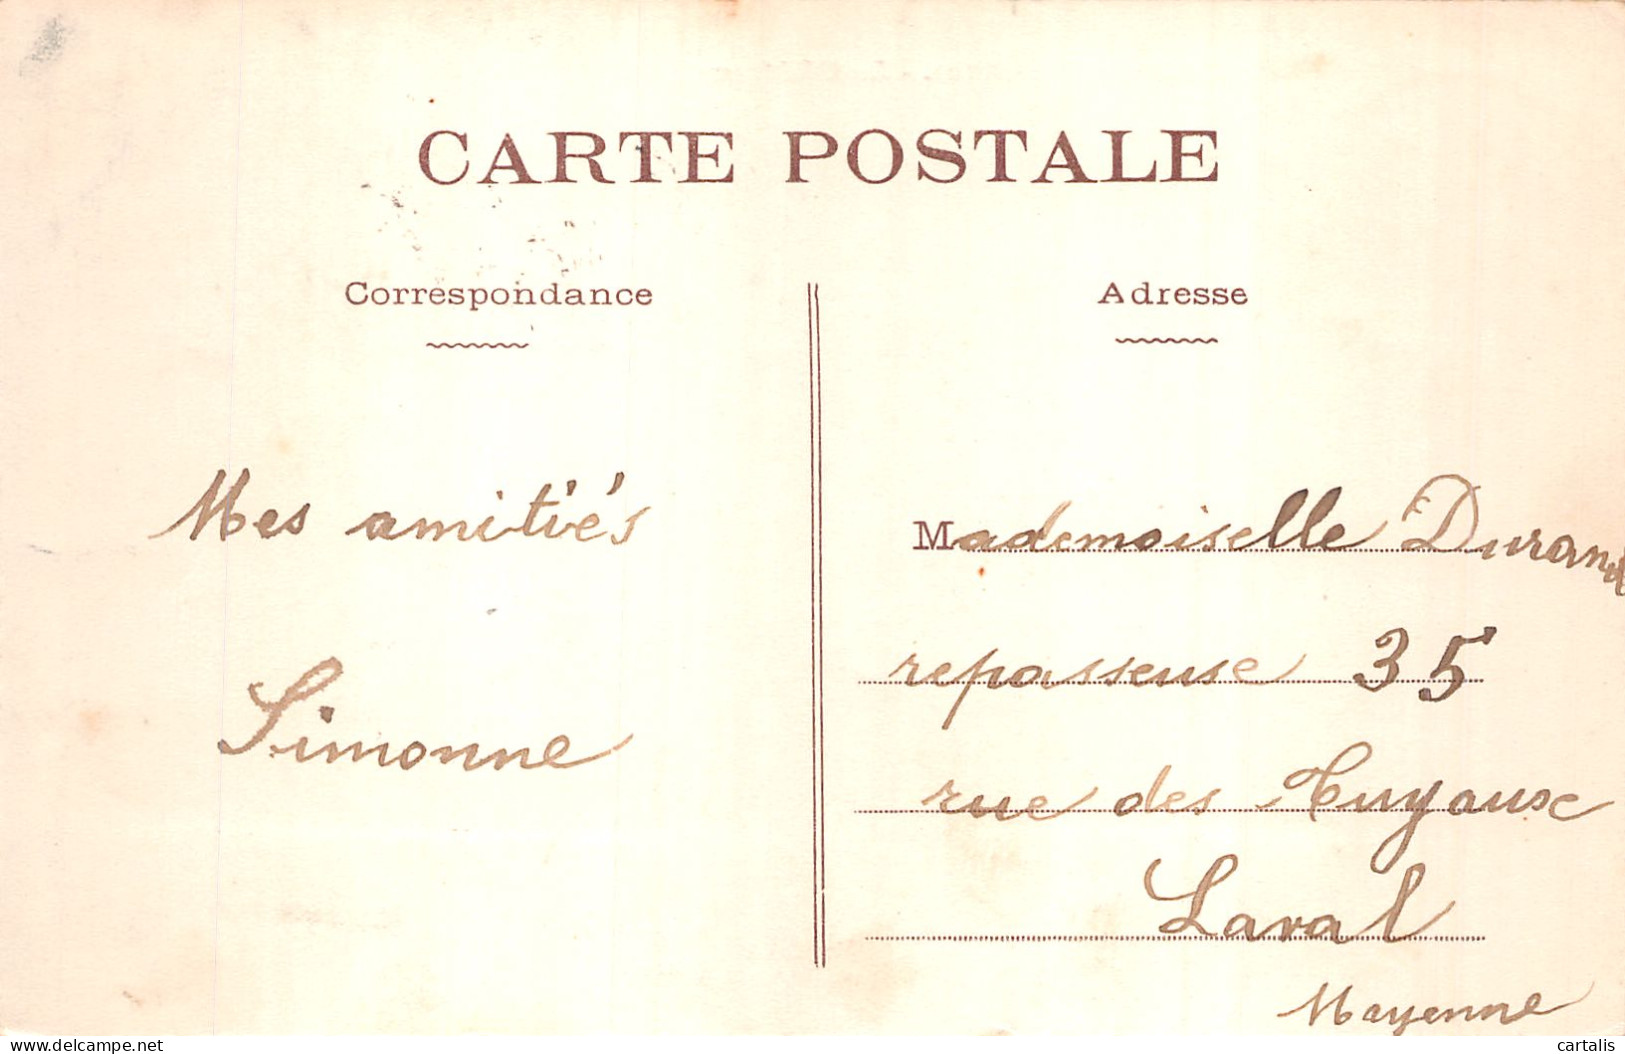 CARTE POSTALE
Correspondance
Adresse
Mes amitiés
Simonne
Mademoiselle Durand
repasseuse 35
rue des Tuyaux
Laval
Mayenne
delcampe.net
cartalis